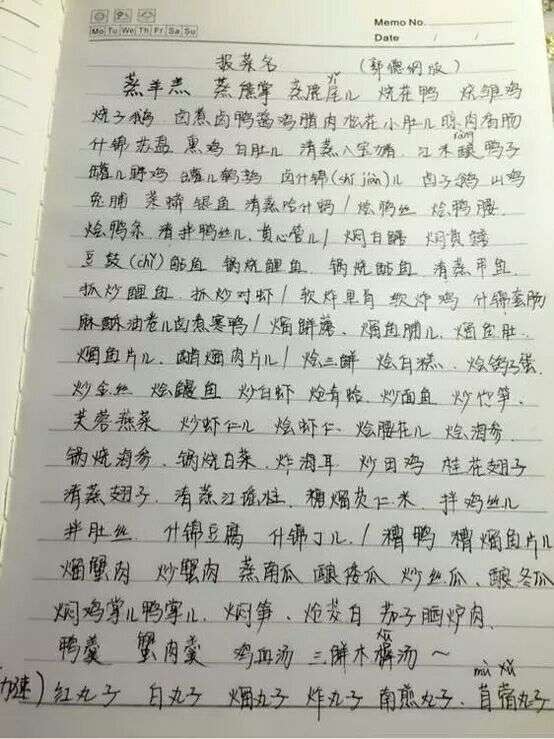 Mo Tu We Th Fr Sa Su
Memo No.
Date / /
报菜名 (郭德纲版)
蒸羊羔 蒸熊掌 蒸鹿尾儿 烧花鸭 烧雏鸡
烧子鹅 卤煮卤鸭酱鸡腊肉松花小肚儿晾肉香肠
什锦苏盘 熏鸡 白肚儿 清蒸八宝猪 江米酿鸭子
罐儿野鸡 罐儿鹌鹑 卤什锦(shí jǐn)儿 卤子鹅 山鸡
兔脯 菜蟒 银鱼 清蒸哈什蚂/烩鸭丝 烩鸭腰
烩鸭条 清拌鸭丝儿、黄心管儿/焖白鳝 焖黄鳝
豆豉(chǐ)鲇鱼 锅烧鲤鱼 锅烧鲇鱼 清蒸甲鱼
抓炒鲤鱼 抓炒对虾/软炸里肩 软炸鸡 什锦套肠
麻酥油卷儿卤煮寒鸭/熘鲜蘑 熘鱼脯儿、熘鱼肚
熘鱼片儿、醋熘肉片儿/烩三鲜 烩白糕、烩鸽子蛋
炒金丝 烩鳗鱼 炒白虾 炝青蛤 炒面鱼 炒竹笋
芙蓉燕菜 炒虾仁儿 烩虾仁 烩腰花儿 烩海参
锅烧海参、锅烧白菜 炸海耳 炒田鸡 桂花翅子
清蒸翅子、清蒸江瑶柱、糟熘芡仁米、拌鸡丝儿
拌肚丝、什锦豆腐 什锦丁儿/糟鸭 糟熘鱼片儿
熘蟹肉 炒蟹肉 蒸南瓜 酿倭瓜 炒丝瓜、酿冬瓜
焖鸡掌儿鸭掌儿、焖笋、炝茭白 茄子晒炉肉
鸭羹 蟹肉羹 鸡血汤 三鲜木樨汤 ~
(加速) 红丸子 白丸子 熘丸子 炸丸子 南煎丸子、苜蓿丸子